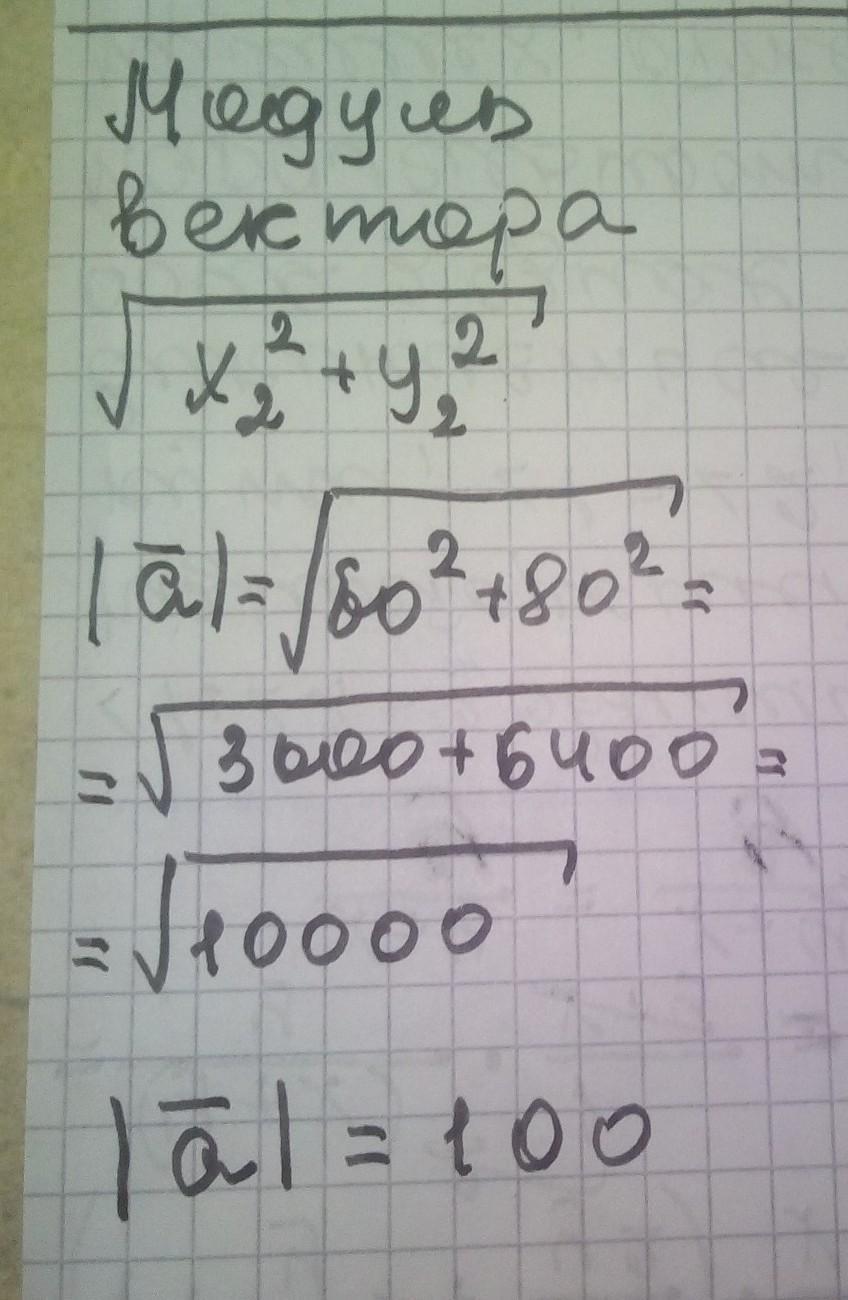 Модуль
вектора
√x₂² + y₂²
|a̅| = √60² + 80² =
= √3600 + 6400 =
= √10000
|a̅| = 100